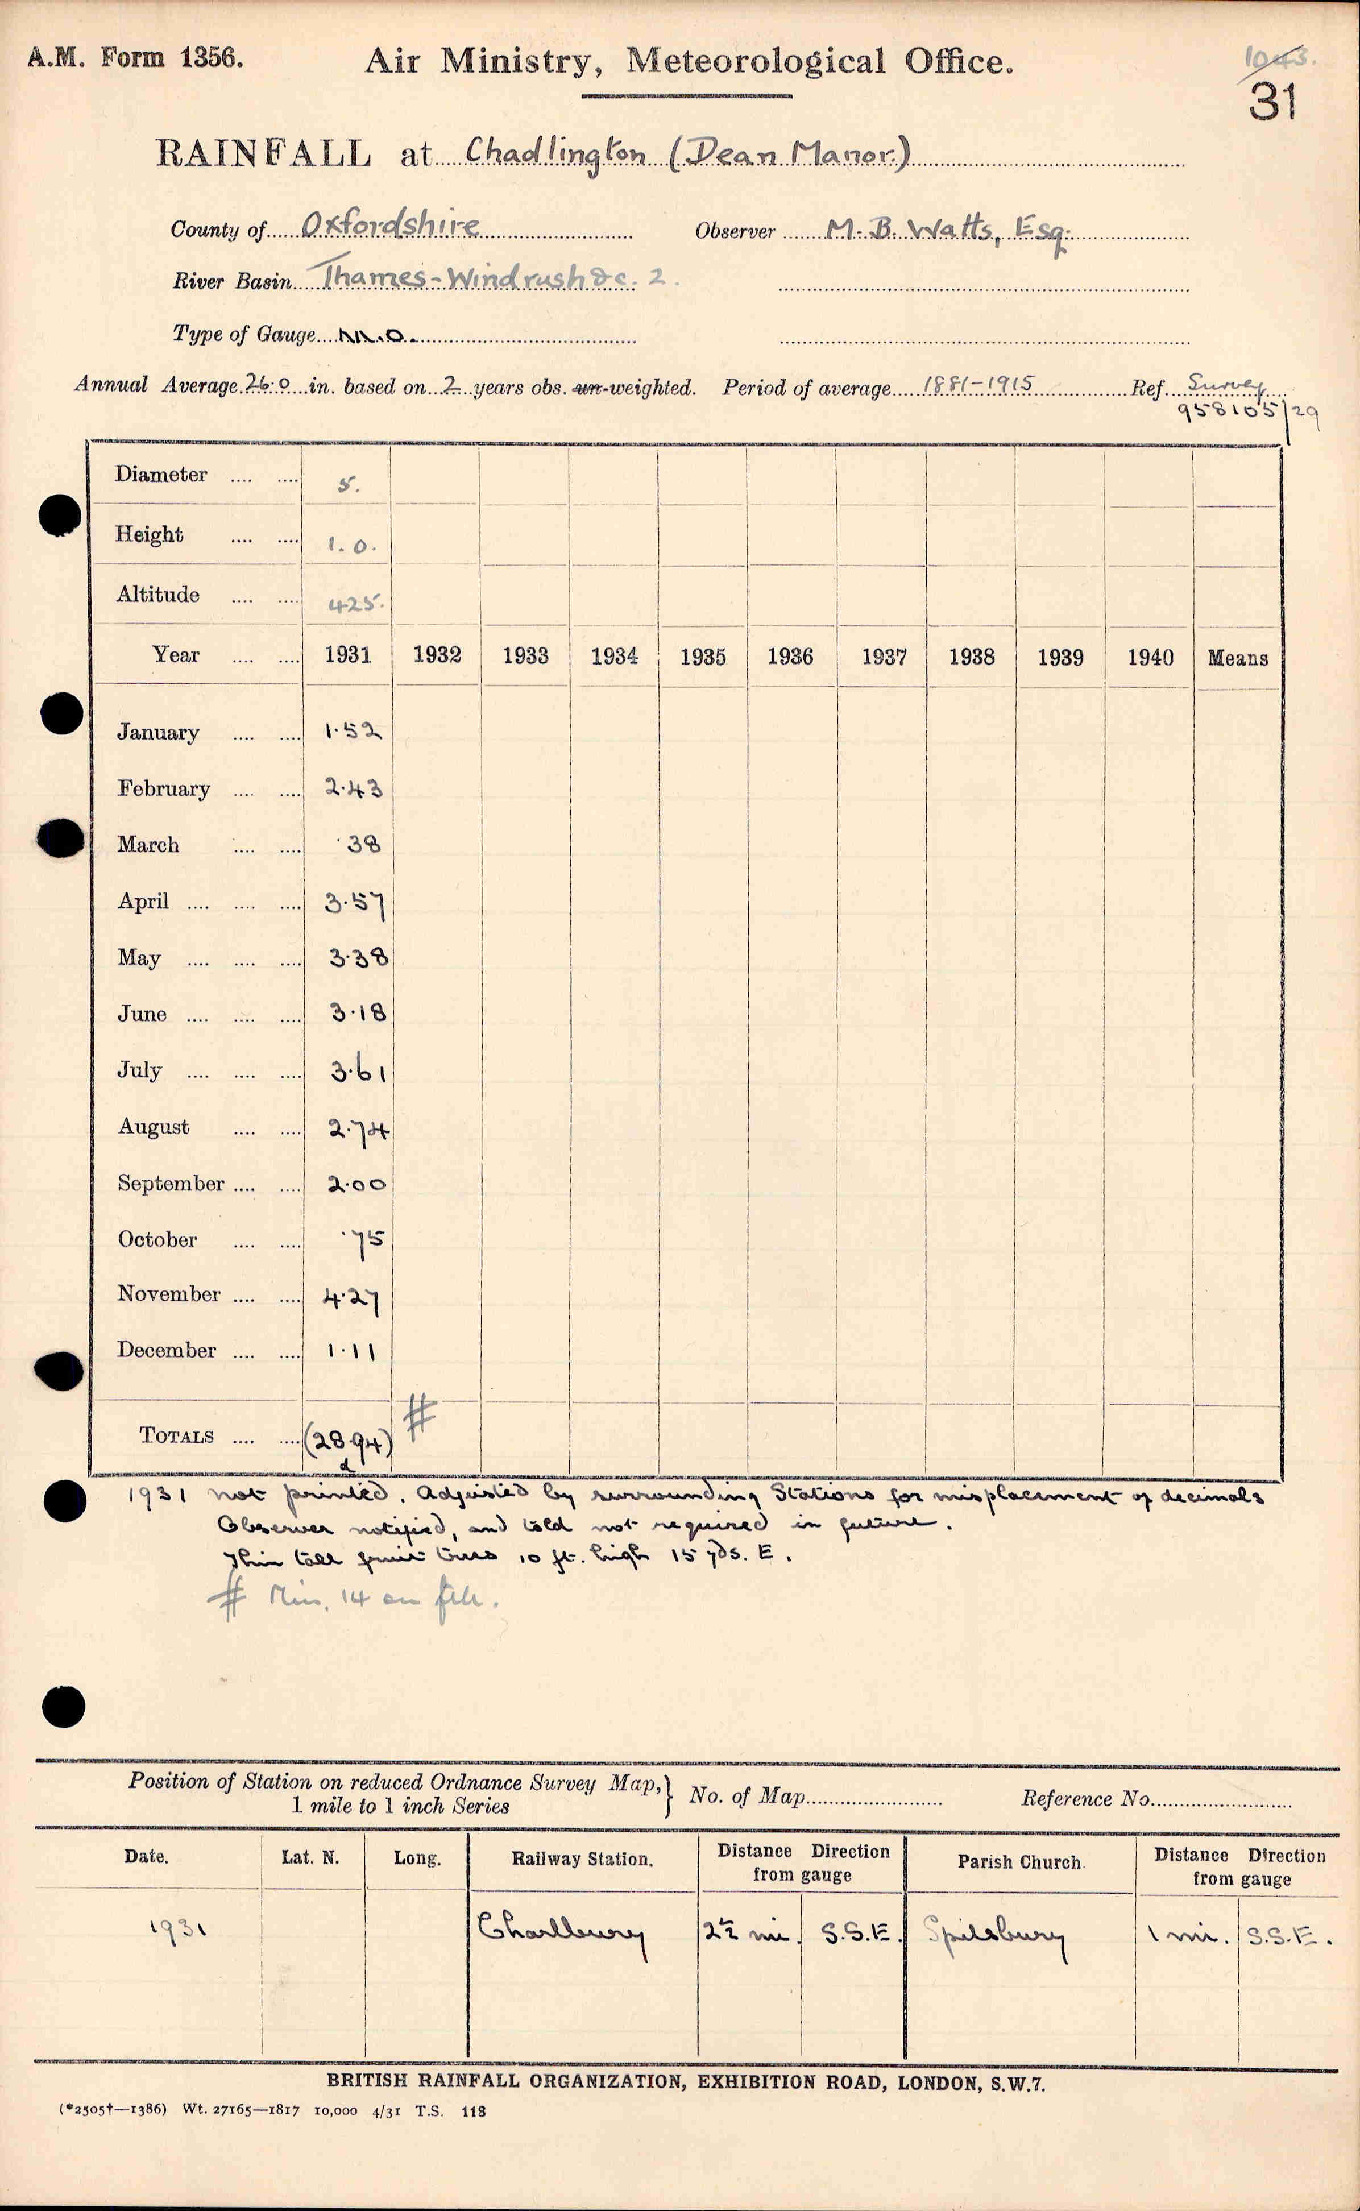 A.M. Form 1356.
Air Ministry, Meteorological Office.
1043.
31
RAINFALL at Chadlington (Dean Manor)
County of Oxfordshire Observer M. B. Watts, Esq.
River Basin Thames-Windrush &c. 2.
Type of Gauge M.O.
Annual Average 26.0 in. based on 2 years obs. un-weighted. Period of average 1881-1915 Ref. Survey
958105/29
Diameter .... .... 5.
Height .... .... 1. 0.
Altitude .... .... 425.
Year .... .... 1931 1932 1933 1934 1935 1936 1937 1938 1939 1940 Means
January .... .... 1.52
February .... .... 2.43
March .... .... .38
April .... .... .... 3.57
May .... .... .... 3.38
June .... .... .... 3.18
July .... .... .... 3.61
August .... .... 2.74
September .... .... 2.00
October .... .... .75
November .... .... 4.27
December .... .... 1.11
TOTALS .... .... (28.94) #
d
1931 not printed. Adjusted by surrounding Stations for misplacement of decimals
Observer notified, and told not required in future.
Thin tall fruit trees 10 ft. high 15 yds. E.
# Min. 14 on file.
Position of Station on reduced Ordnance Survey Map, } No. of Map Reference No.
1 mile to 1 inch Series
Date. Lat. N. Long. Railway Station. Distance Direction Parish Church. Distance Direction
from gauge from gauge
1931 Charlbury 2½ mi. S.S.E. Spilsbury 1 mi. S.S.E.
BRITISH RAINFALL ORGANIZATION, EXHIBITION ROAD, LONDON, S.W.7.
(*2505†—1386) Wt. 27165—1817 10,000 4/31 T.S. 118